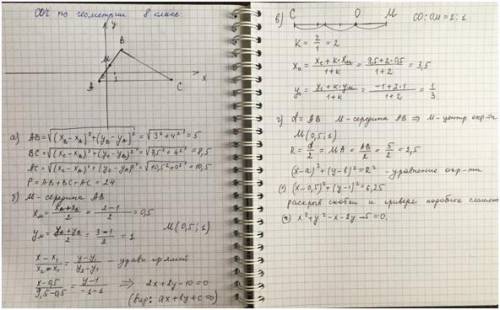 СОЧ по геометрии 8 класс
y
B
M
A
1
C
x
а) AB = √((x_B - x_A)² + (y_B - y_A)²) = √(3² + 4²) = 5
BC = √((x_C - x_B)² + (y_C - y_B)²) = √(7,5² + 4²) = 8,5
AC = √((x_C - x_A)² + (y_C - y_A)²) = √(10,5² + 0²) = 10,5
P = AB + BC + AC = 24
б) M - середина AB
x_M = (x_A + x_B)/2 = (2-1)/2 = 0,5
y_M = (y_A + y_B)/2 = (3-1)/2 = 1
M(0,5; 1)
(x - x₁)/(x₂ - x₁) = (y - y₁)/(y₂ - y₁) -
(x - 0,5)/(9,5 - 0,5) = (y - 1)/(-1 - 1) ⇒ 2x + 2y - 10 = 0
(вид: ax + by + c = 0)
в) C O M
CO:OM = 2:1
K = 2/1 = 2
x₀ = (x_C + k·x_M)/(1 + k) = (9,5 + 2·0,5)/(1 + 2) = 3,5
y₀ = (y_C + k·y_M)/(1 + k) = (-1 + 2·1)/(1 + 2) = 1/3
г) d = AB M - середина AB ⇒ M - центр окр-ти
M(0,5; 1)
R = d/2 = MA = AB/2 = 5/2 = 2,5
(x - a)² + (y - b)² = R² - уравнение окр-ти
(x - 0,5)² + (y - 1)² = 6,25
раскрыв скобки и приведя подобные
x² + y² - x - 2y - 5 = 0